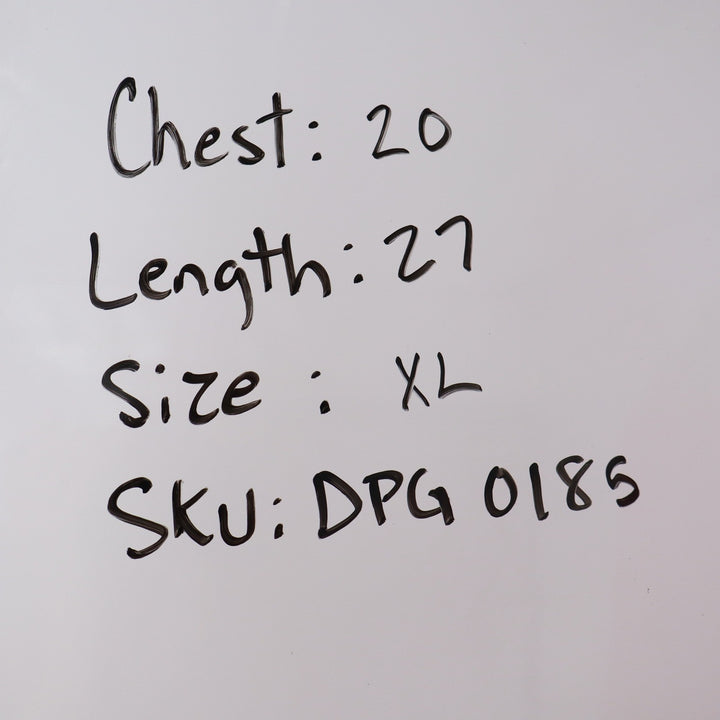 Chest: 20
Length: 27
Size : XL
SKU: DPG 0185